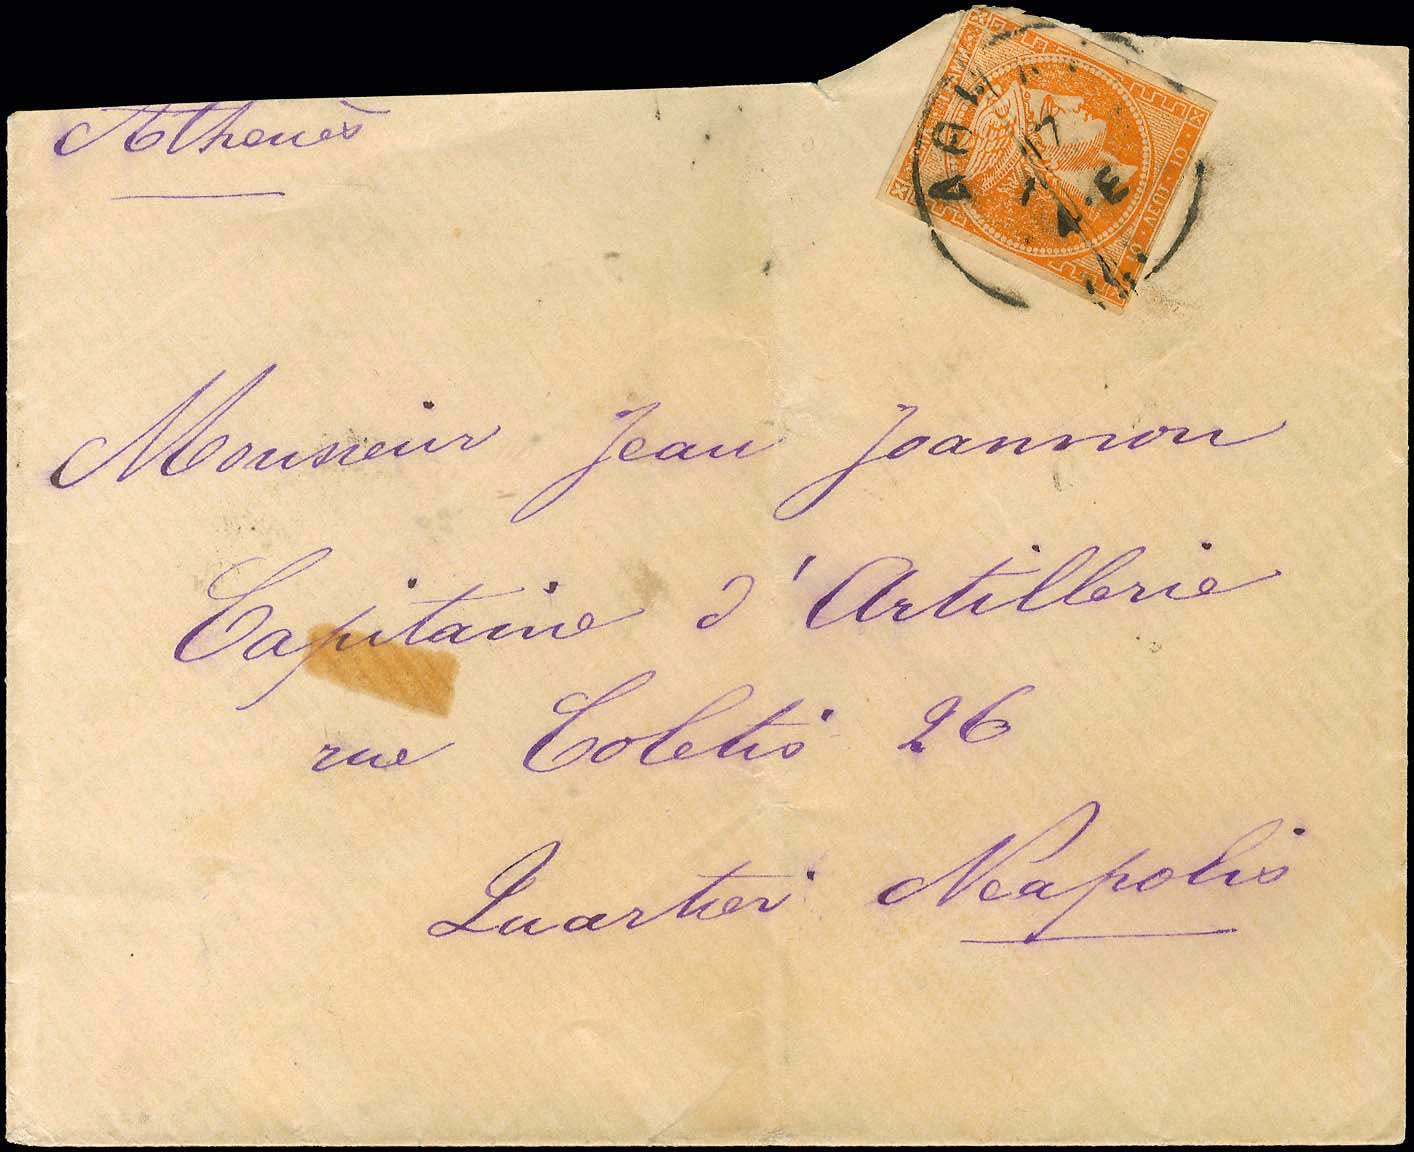 Athenès
10 · ΛΕΠΤ · 10
Monsieur Jean Joannou
Capitaine d'Artillerie
rue Coletis 26
Quartier Néapolis